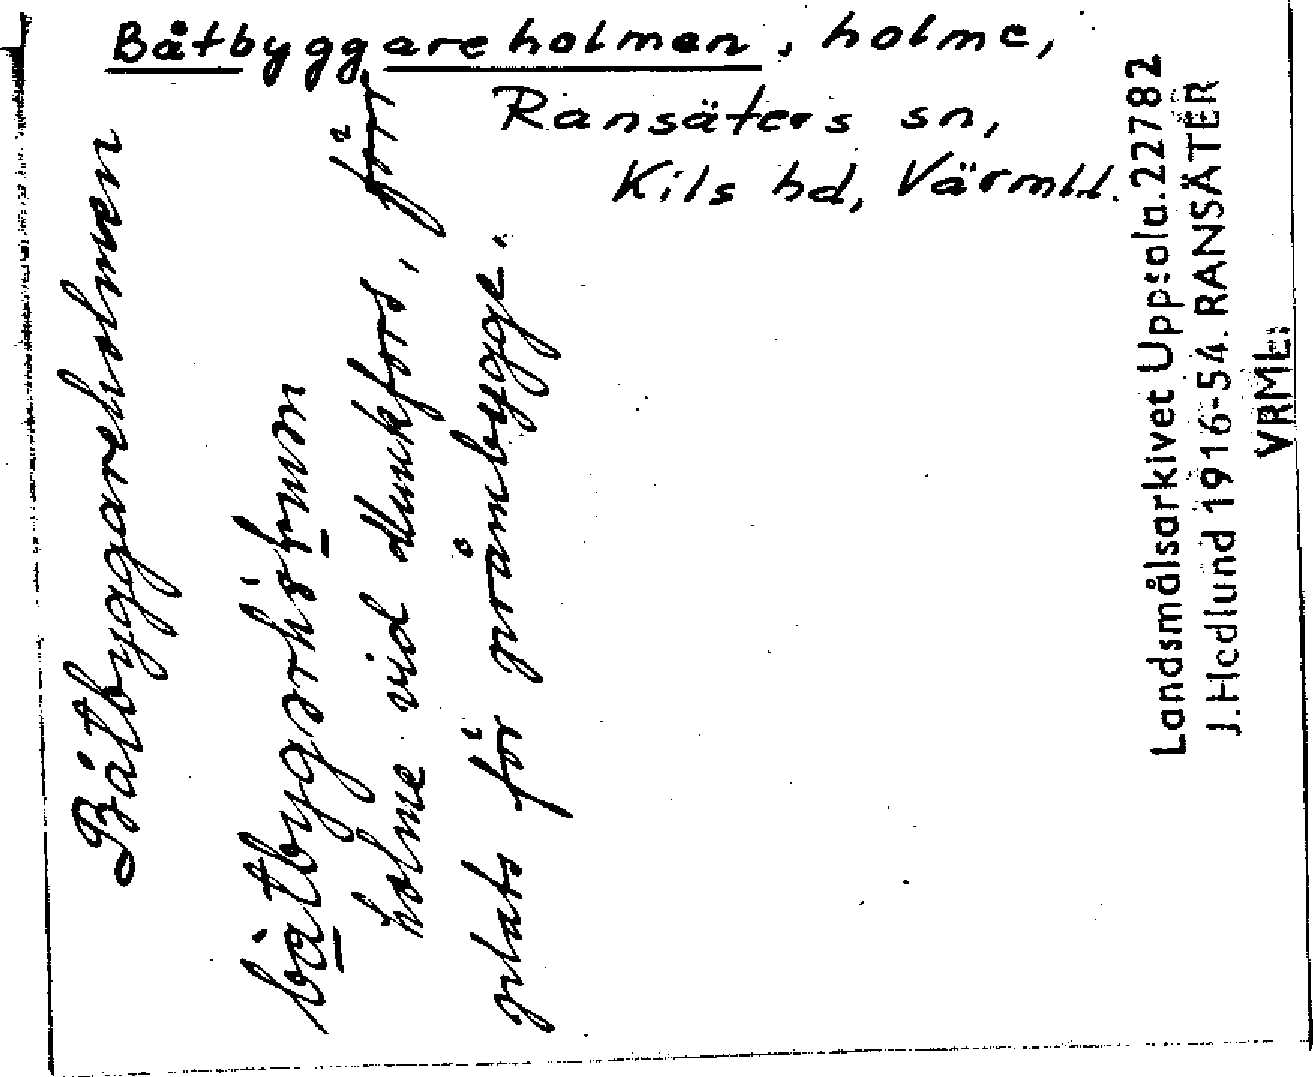 Båtbyggareholmen, holme,
Ransäters sn,
Kils hd, Värmld.
Båtbyggareholmen
holme vid Munkfors, förr
plats för pråmbygge.
Landsmålsarkivet Uppsala. 22782
J. Hedlund 1916-54. RANSÄTER
VRML.